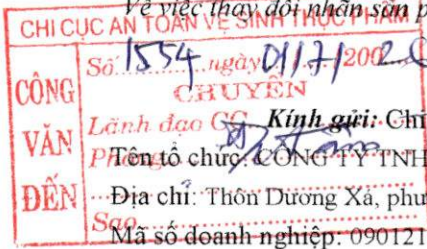 Về việc thay đổi nhãn sản p
CHI CỤC AN TOÀN VỆ SINH THỰC PHẨM
CÔNG VĂN ĐẾN
Số 1554 ngày 01/7/200
CHUYỂN
Lãnh đạo CC
Kính gửi: Chi
Tên tổ chức: CÔNG TY TNH
Địa chỉ: Thôn Dương Xá, phu
Sao
Mã số doanh nghiệp: 090121